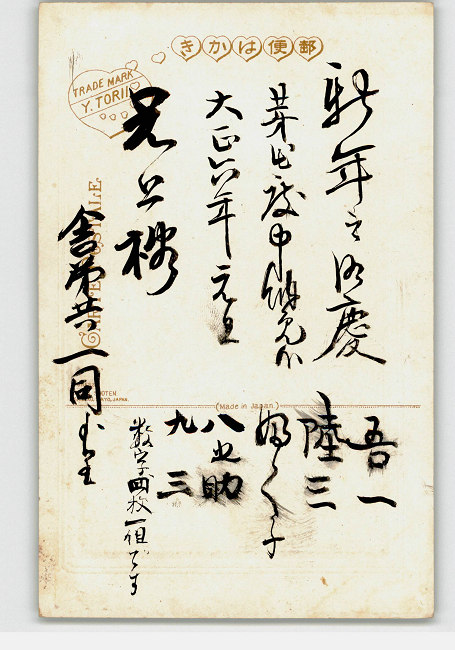 郵便はかき
TRADE MARK
Y. TORII
CARTE POSTALE
新年之御慶
芽出度申納候
大正六年元旦
兄上様
舎弟共一同より
(Made in Japan)
吾一
陸三
婦く子
八之助
九三
数字四枚一組です